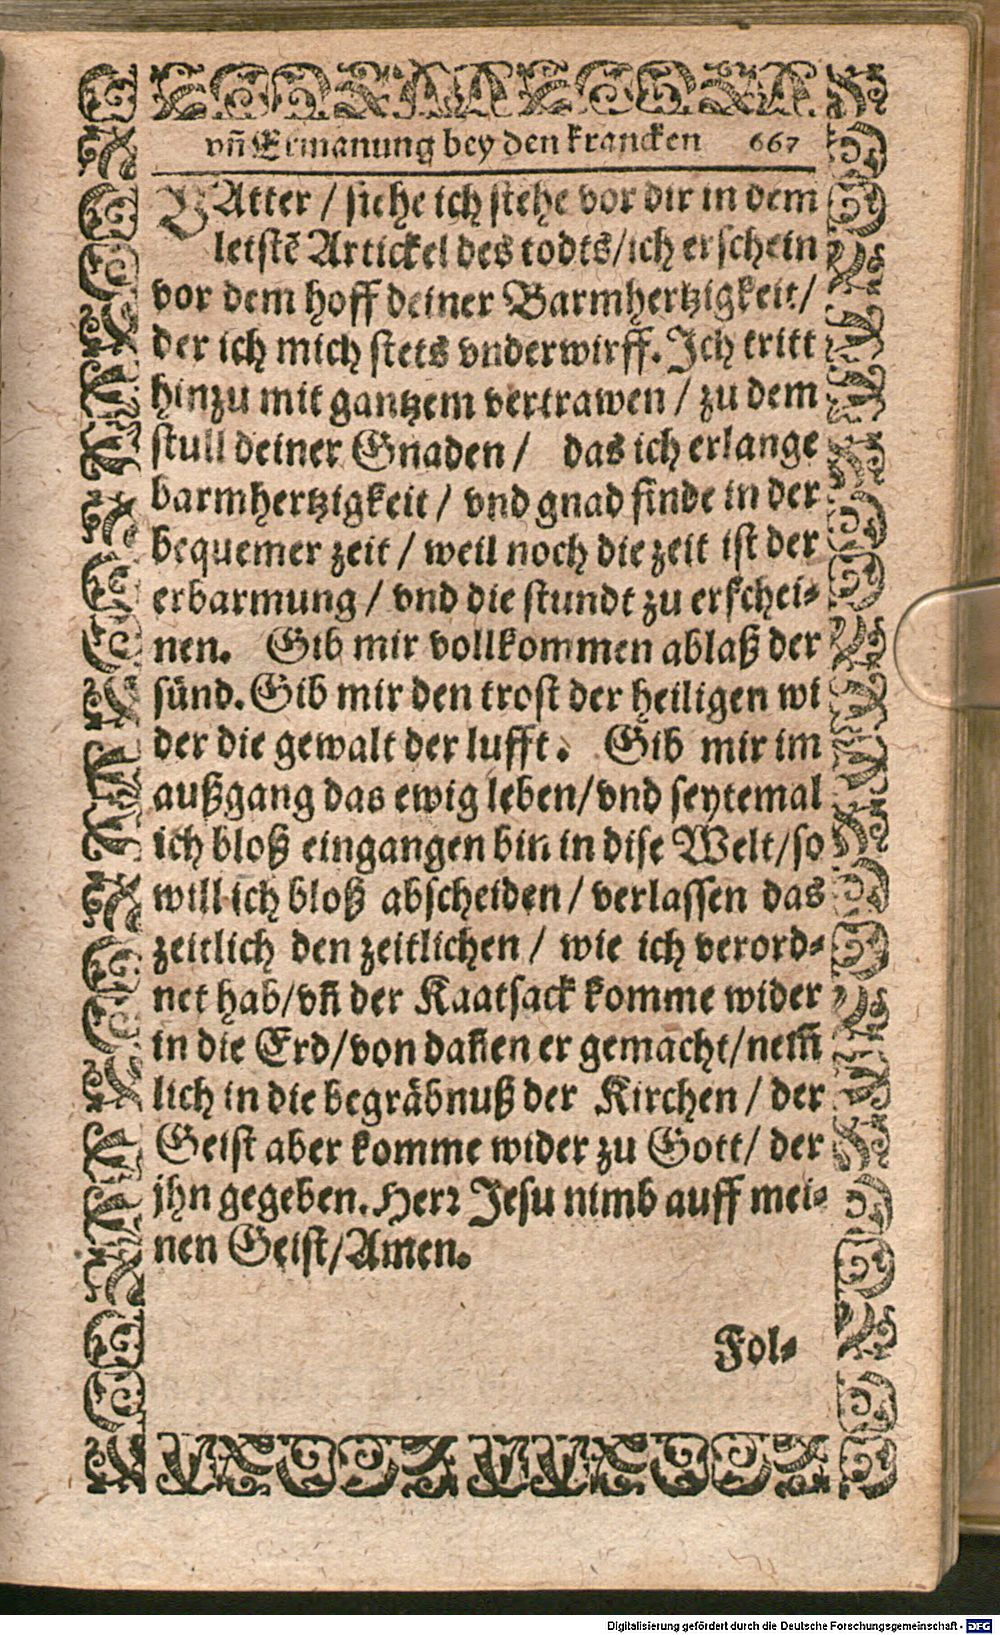 vñ Ermanung bey den krancken 667
VAtter / siehe ich stehe vor dir in dem
letstẽ Artickel des todts/ich erschein
vor dem hoff deiner Barmhertzigkeit/
der ich mich stets vnderwirff. Ich tritt
hinzu mit gantzem vertrawen / zu dem
stull deiner Gnaden / das ich erlange
barmhertzigkeit / vnd gnad finde in der
bequemer zeit / weil noch die zeit ist der
erbarmung / vnd die stundt zu erschei-
nen. Gib mir vollkommen ablaß der
sünd. Gib mir den trost der heiligen wi
der die gewalt der lufft. Gib mir im
außgang das ewig leben/vnd seytemal
ich bloß eingangen bin in dise Welt/so
will ich bloß abscheiden / verlassen das
zeitlich den zeitlichen / wie ich verord-
net hab/vñ der Kaatsack komme wider
in die Erd/von dañen er gemacht/nem̃
lich in die begräbnuß der Kirchen / der
Geist aber komme wider zu Gott/ der
jhn gegeben. Herr Jesu nimb auff mei-
nen Geist/Amen.
Fol-
Digitalisierung gefördert durch die Deutsche Forschungsgemeinschaft - DFG